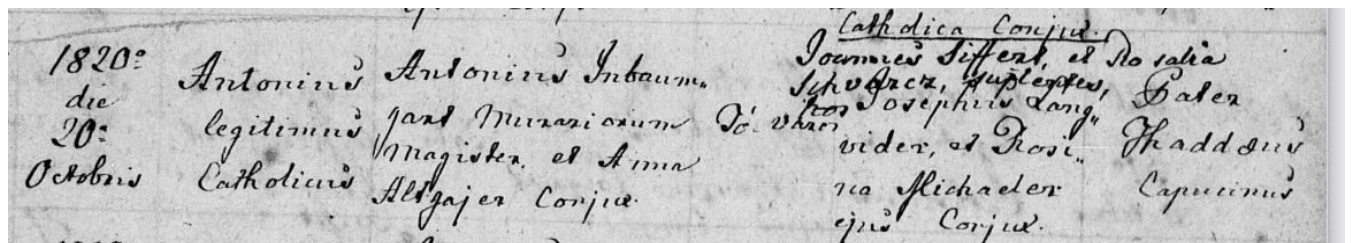 Catholica Conjux.
1820º
die
20º
Octobris
Antonius
legitimus
Catholicus
Antonius Inbaum„
gart Murariorum
Magister, et Anna
Altgajer Conjux.
Tóváros
Joannes Siffert, et Rosalia
Schvarcz, suplentes,
hos Josephus Lang„
vider, et Rosi„
na Michaeler
ejus Conjux.
Pater
Thaddæus
Capucinus